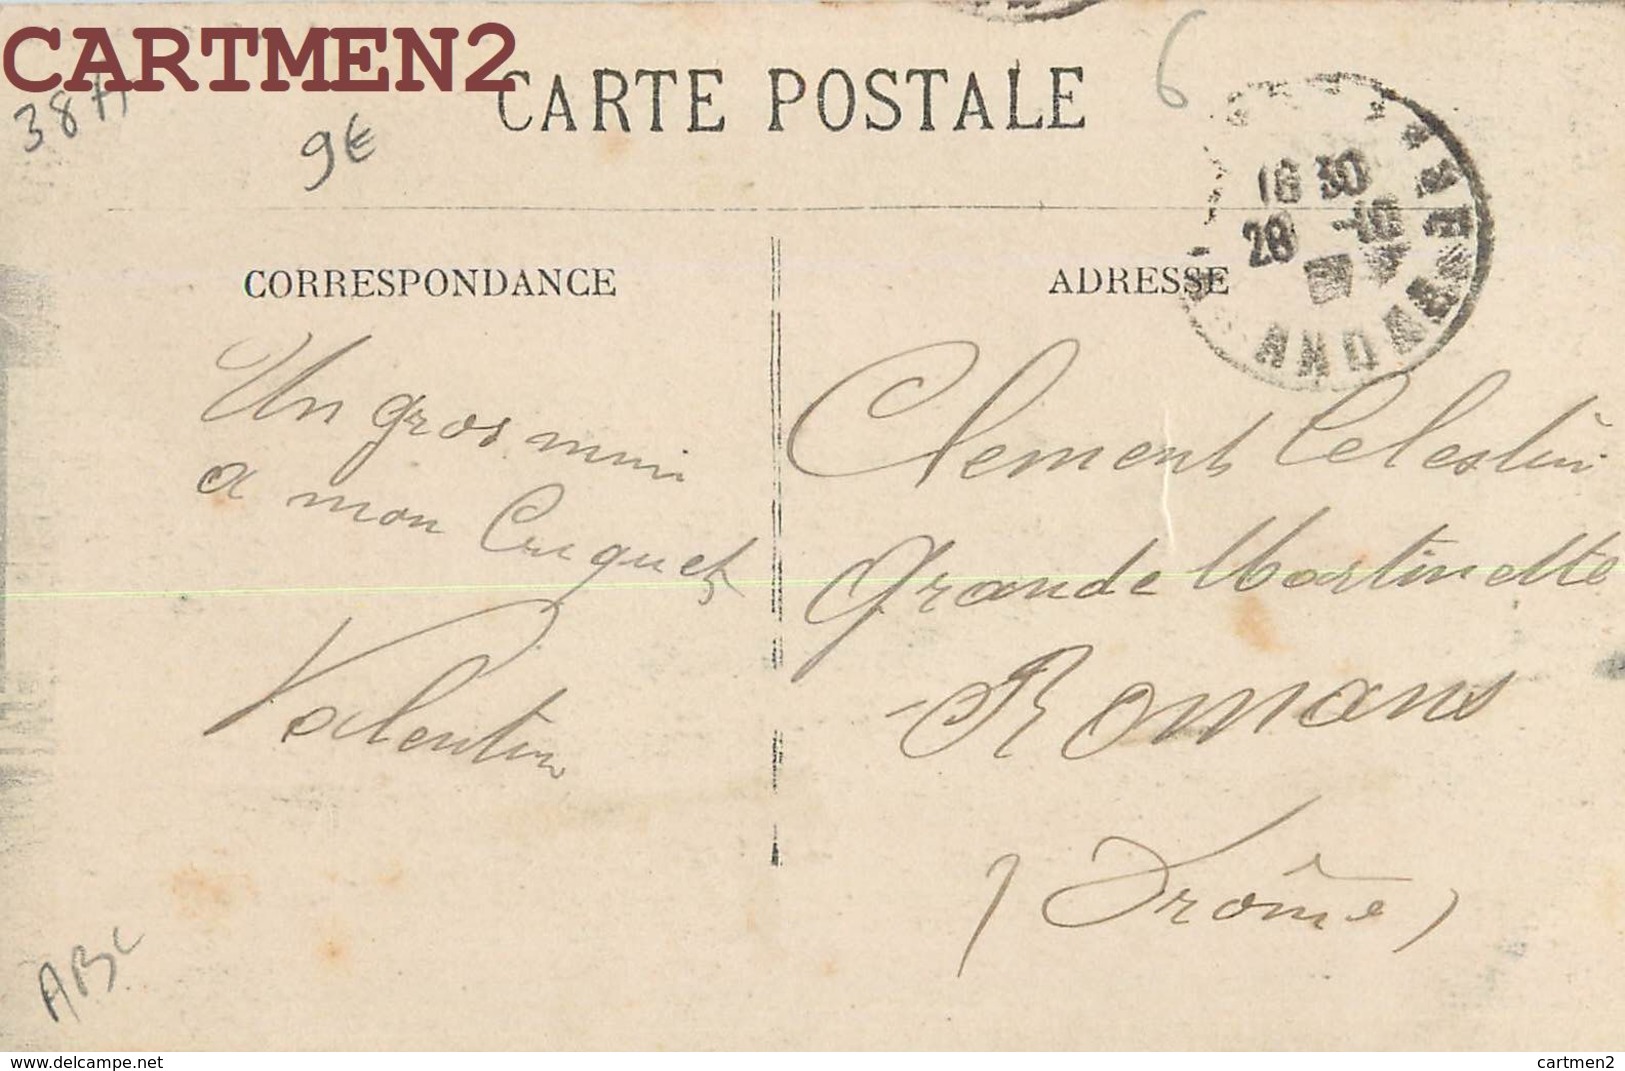 CARTMEN2
CARTE POSTALE
6
38 A
9€
16 30
28 -10
CORRESPONDANCE
ADRESSE
Un gros mimi
a mon Cuquet
Valentin
Clement Celestin
Grande Martinette
Romans
(Drôme)
ABC
www.delcampe.net
cartmen2